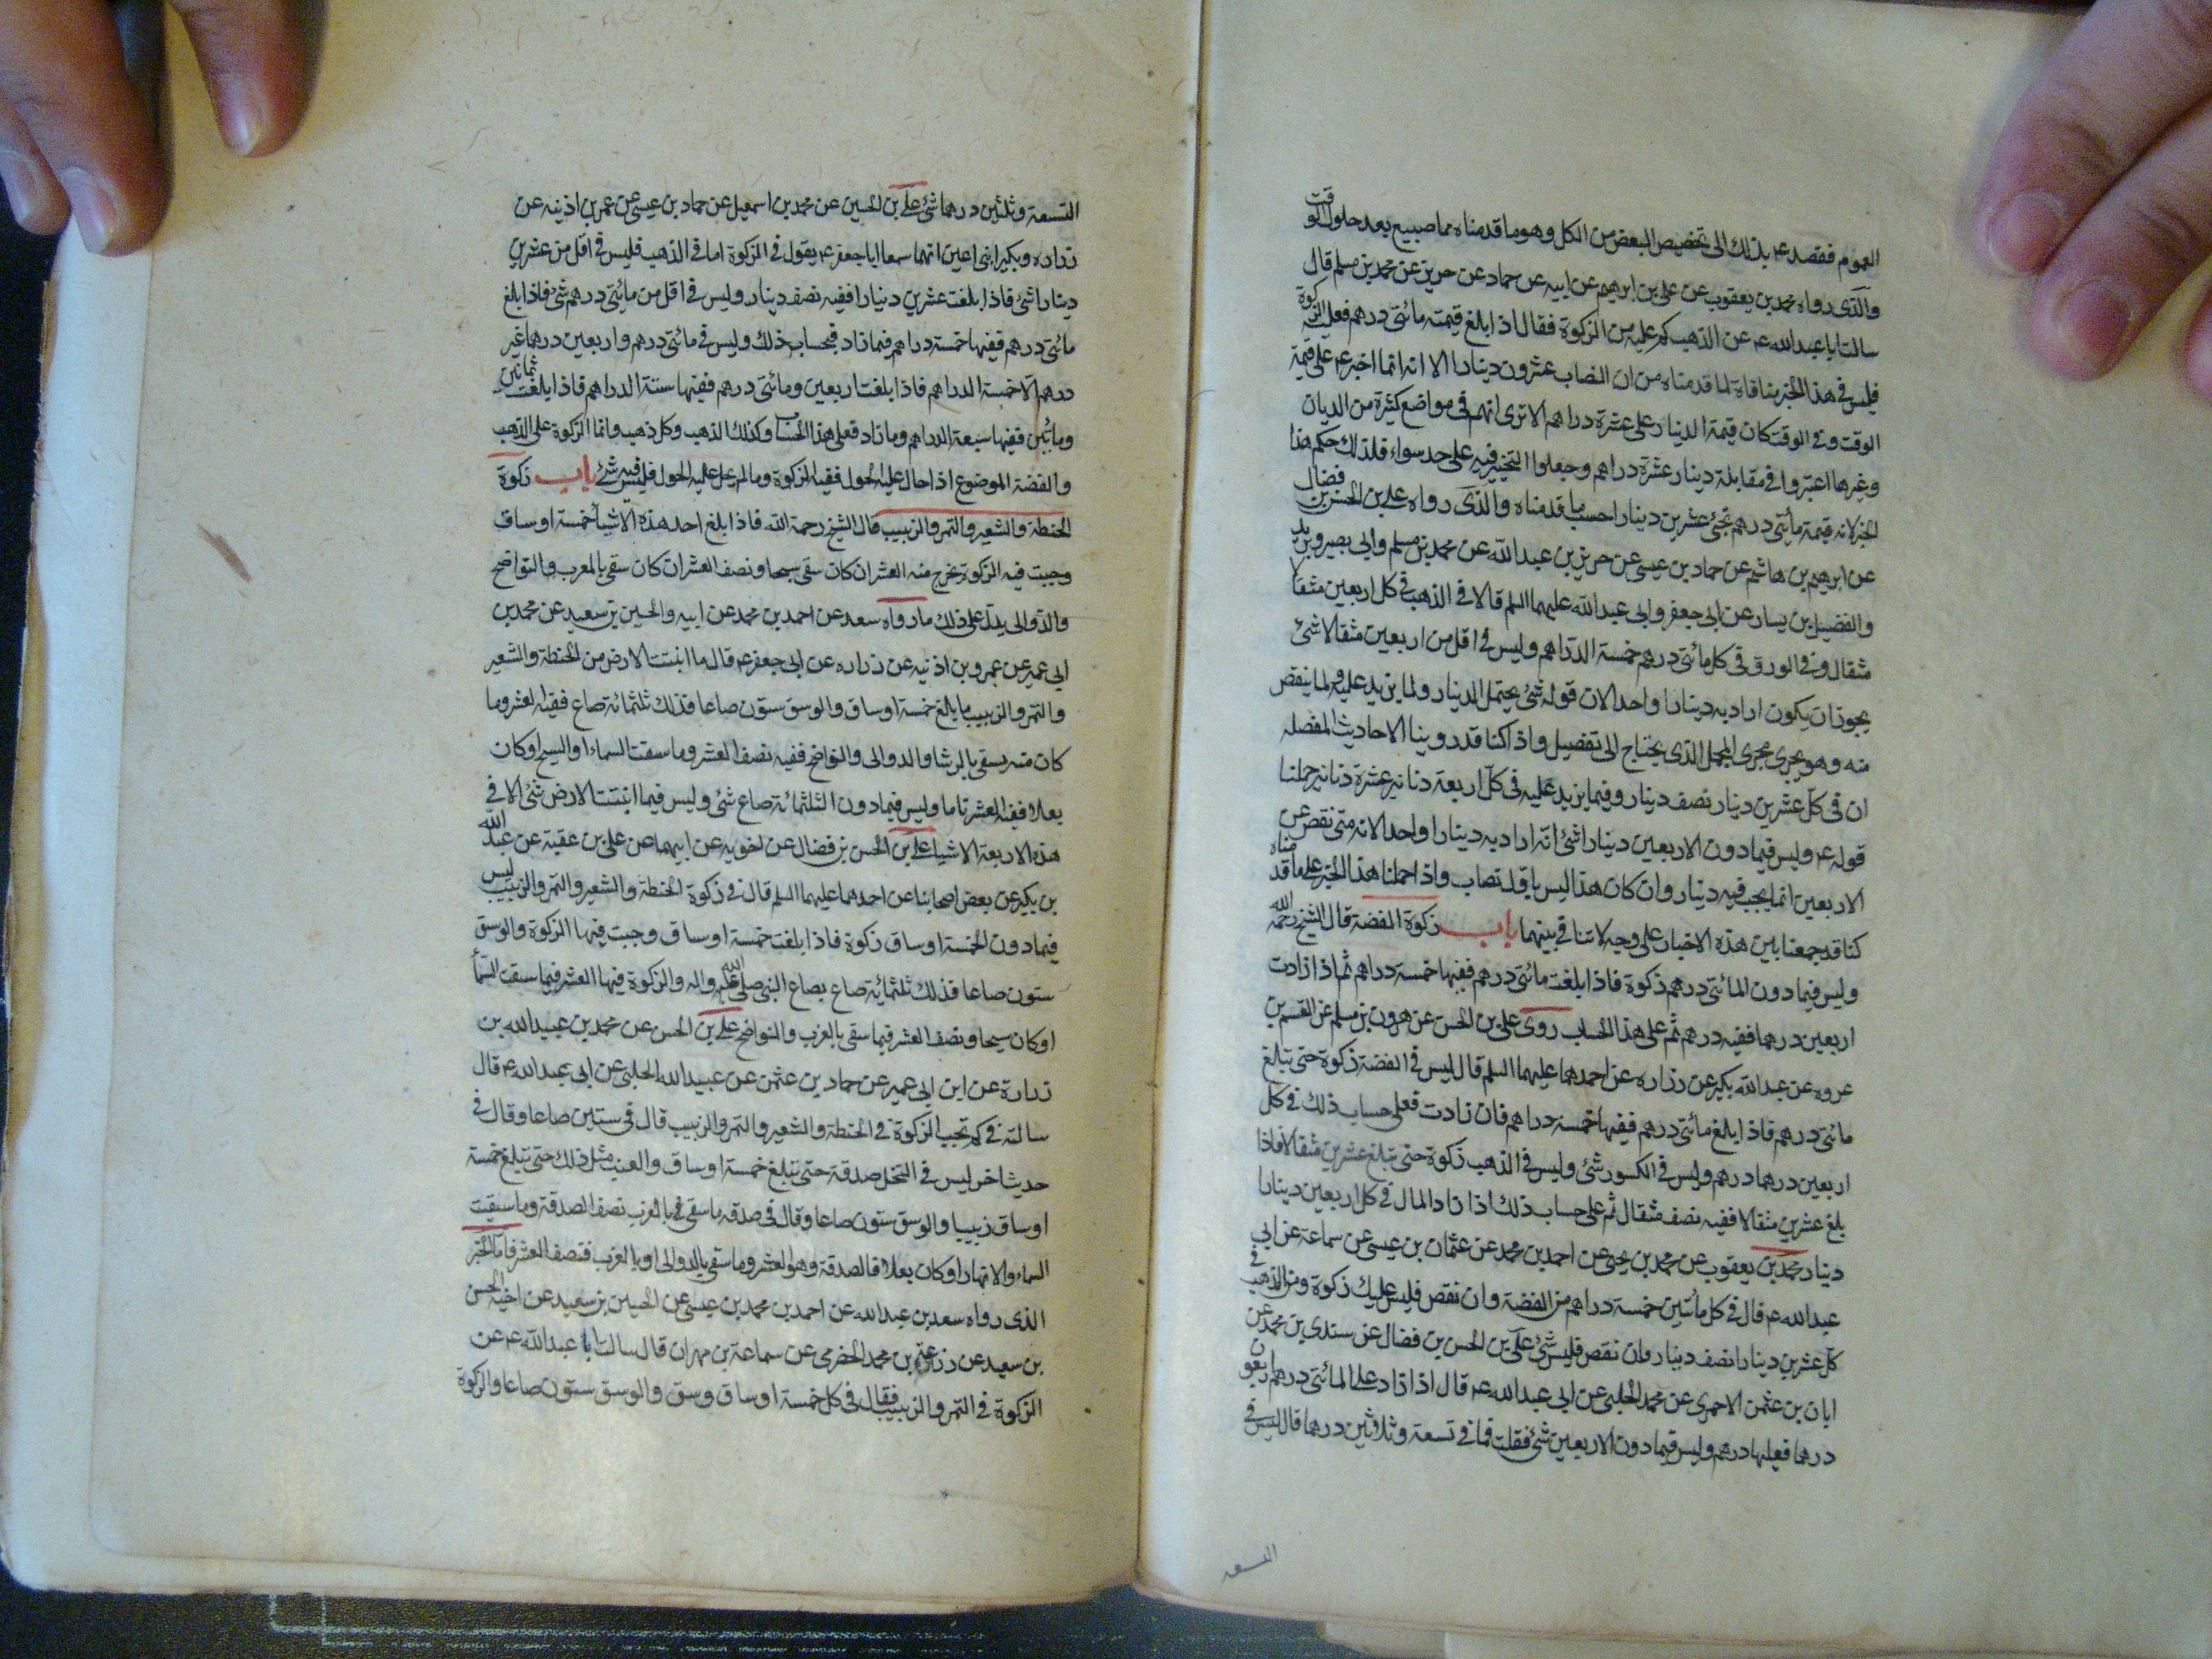 العموم فقصد ع بذلك الى تخصيص البعض من الكل وهو ما قدمناه مما صبيع بعد حلول الوقت
والذى رواه محمد بن يعقوب عن على بن ابرهيم عن ابيه عن حماد عن حريز عن محمد بن مسلم قال
سالت ابا عبد الله ع عن الذهب كم عليه من الزكوة فقال اذا بلغ قيمته مائتى درهم فعليه الزكوة
فليس فى هذا الخبر منافاة لما قدمناه من ان النصاب عشرون دينارا الا انه انما اخبر ع على قيمة
الوقت وفى الوقت كان قيمة الدينار على عشرة دراهم الا ترى انهم فى مواضع كثيرة من الديات
وغيرها اعتبروا فى مقابلة دينار عشرة دراهم وجعلوا التخيير فيه على حد سواء فلذلك حكم هذا
الخبر لانه قيمة مائتى درهم تجئ عشرين دينارا حسب ما قدمناه والذى رواه على بن الحسن بن فضال
عن ابرهيم بن هاشم عن حماد بن عيسى عن حريز بن عبد الله عن محمد بن مسلم وابى بصير وبريد
والفضيل بن يسار عن ابى جعفر وابى عبد الله عليهما السلم قالا فى الذهب فى كل اربعين مثقالا
مثقال وفى الورق فى كل مائتى درهم خمسة الدراهم وليس فى اقل من اربعين مثقالا شئ
يجوز ان يكون اراد به دينارا واحدا لان قوله شئ يحتمل الدينار ولما يزيد عليه ولما ينقص
منه وهو يجرى مجرى المجمل الذى يحتاج الى تفصيل واذا كنا قد روينا الاحاديث المفصله
ان فى كل عشرين دينار نصف دينار وفيما يزيد عليه فى كل اربعة دنانير عشرة دنانير حملنا
قوله ع وليس فيما دون الاربعين دينارا شئ انه اراد به دينارا واحدا لانه متى نقص عن
الاربعين انما يجب فيه دينار وان كان هذا ليس باول نصاب واذا حملنا هذا الخبر على ما قدمناه
كنا قد جمعنا بين هذه الاخبار على وجه لا تنافى بينهما باب زكوة الفضة قال الشيخ رحمه الله
وليس فيما دون المائتى درهم زكوة فاذا بلغت مائتى درهم ففيها خمسة دراهم ثم اذا زادت
اربعين درهما ففيه درهم ثم على هذا الحساب روى على بن الحسن عن هرون بن مسلم عن القسم بن
عروه عن عبد الله بكير عن زراره عن احدهما عليهما السلم قال ليس فى الفضة زكوة حتى تبلغ
مائتى درهم فاذا بلغ مائتى درهم ففيها خمسة دراهم فان زادت فعلى حساب ذلك فى كل
اربعين درهما درهم وليس فى الكسور شئ وليس فى الذهب زكوة حتى تبلغ عشرين مثقالا فاذا
بلغ عشرين مثقالا ففيه نصف مثقال ثم على حساب ذلك اذا زاد المال فى كل اربعين دينارا
دينار محمد بن يعقوب عن محمد بن يحيى عن احمد بن محمد عن عثمان بن عيسى عن سماعة عن ابى
عبد الله ع قال فى كل مائتين خمسة دراهم من الفضة وان نقص فليس عليك زكوة ومن الذهب فى
كل عشرين دينارا نصف دينار وان نقص فليس شئ على بن الحسن بن فضال عن سندى بن محمد عن
ابان بن عثمن الاحمرى عن محمد الحلبى عن ابى عبد الله ع قال اذا زاد على المائتى درهم اربعون
درهما فعليها درهم وليس فيما دون الاربعين شئ فقلت فما فى تسعة وثلاثين درهما قال ليس فى
التسعه
التسعة وثلثين درهما شئ على بن الحسين عن محمد بن اسمعيل عن حماد بن عيسى عن عمر بن اذينه عن
زراره وبكير ابنى اعين انهما سمعا ابا جعفر ع يقول فى الزكوة اما فى الذهب فليس فى اقل من عشرين
دينارا شئ فاذا بلغت عشرين دينارا ففيه نصف دينار وليس فى اقل من مائتى درهم شئ فاذا بلغ
مائتى درهم ففيها خمسة دراهم فما زاد فبحساب ذلك وليس فى مائتى درهم واربعين درهما غير
درهم الا خمسة الدراهم فاذا بلغت اربعين ومائتى درهم ففيها ستة الدراهم فاذا بلغت ثمانين
ومائتين ففيها سبعة الدراهم وما زاد فعلى هذا الحساب وكذلك الذهب وكل ذهب وانما الزكوة على الذهب
والفضة الموضوع اذا حال عليه الحول ففيه الزكوة وما لم يحل عليه الحول فليس فيه شئ باب زكوة
الحنطة والشعير والتمر والزبيب قال الشيخ رحمة الله فاذا بلغ احد هذه الاشياء خمسة اوساق
وجبت فيه الزكوة يخرج منه العشر ان كان سقى سيحا ونصف العشر ان كان سقى بالغرب والنواضح
والدوالى يدل على ذلك ما رواه سعد عن احمد بن محمد عن ابيه والحسين بن سعيد عن محمد بن
ابى عمير عن عمرو بن اذنيه عن زراره عن ابى جعفر ع قال ما انبتت الارض من الحنطة والشعير
والتمر والزبيب ما بلغ خمسة اوساق والوسق ستون صاعا فذلك ثلثمائة صاع ففيه العشر وما
كان منه يسقى بالرشا والدوالى والنواضح ففيه نصف العشر وما سقت السماء او السيح او كان
بعلا ففيه العشر تاما وليس فيما دون الثلثمائة صاع شئ وليس فيما انبتت الارض شئ الا فى
هذه الاربعة الاشياء على بن الحسن بن فضال عن اخويه عن ابيهما عن على بن عقبة عن عبد الله
بن بكير عن بعض اصحابنا عن احدهما عليهما السلم قال فى زكوة الحنطة والشعير والتمر والزبيب ليس
فيما دون الخمسة اوساق زكوة فاذا بلغت خمسة اوساق وجبت فيها الزكوة والوسق
ستون صاعا فذلك ثلثمائة صاع بصاع النبى صلى الله عليه واله والزكوة فيها العشر فيما سقت السماء
او كان سيحا ونصف العشر فيما سقى بالغرب والنواضح على بن الحسن عن محمد بن عبيد الله بن
زرارة عن ابن ابى عمير عن حماد بن عثمن عن عبيد الله الحلبى عن ابى عبد الله ع قال
سالته فى كم تجب الزكوة فى الحنطة والشعير والتمر والزبيب قال فى ستين صاعا وقال فى
حديث اخر ليس فى النخل صدقة حتى تبلغ خمسة اوساق والعنب مثل ذلك حتى تبلغ خمسة
اوساق زبيبا والوسق ستون صاعا وقال فى صدقه ما سقى فى بالغرب نصف الصدقة وما سقت
السماء والانهار او كان بعلا فالصدقة وهو العشر وما سقى بالدوالى او بالغرب فنصف العشر فاما الخبر
الذى رواه سعد بن عبد الله عن احمد بن محمد بن عيسى عن الحسين بن سعيد عن اخيه الحسن
بن سعيد عن زرعة بن محمد الحضرمى عن سماعة بن مهران قال سالت ابا عبد الله ع عن
الزكوة فى التمر والزبيب فقال فى كل خمسة اوساق وسق والوسق ستون صاعا والزكوة